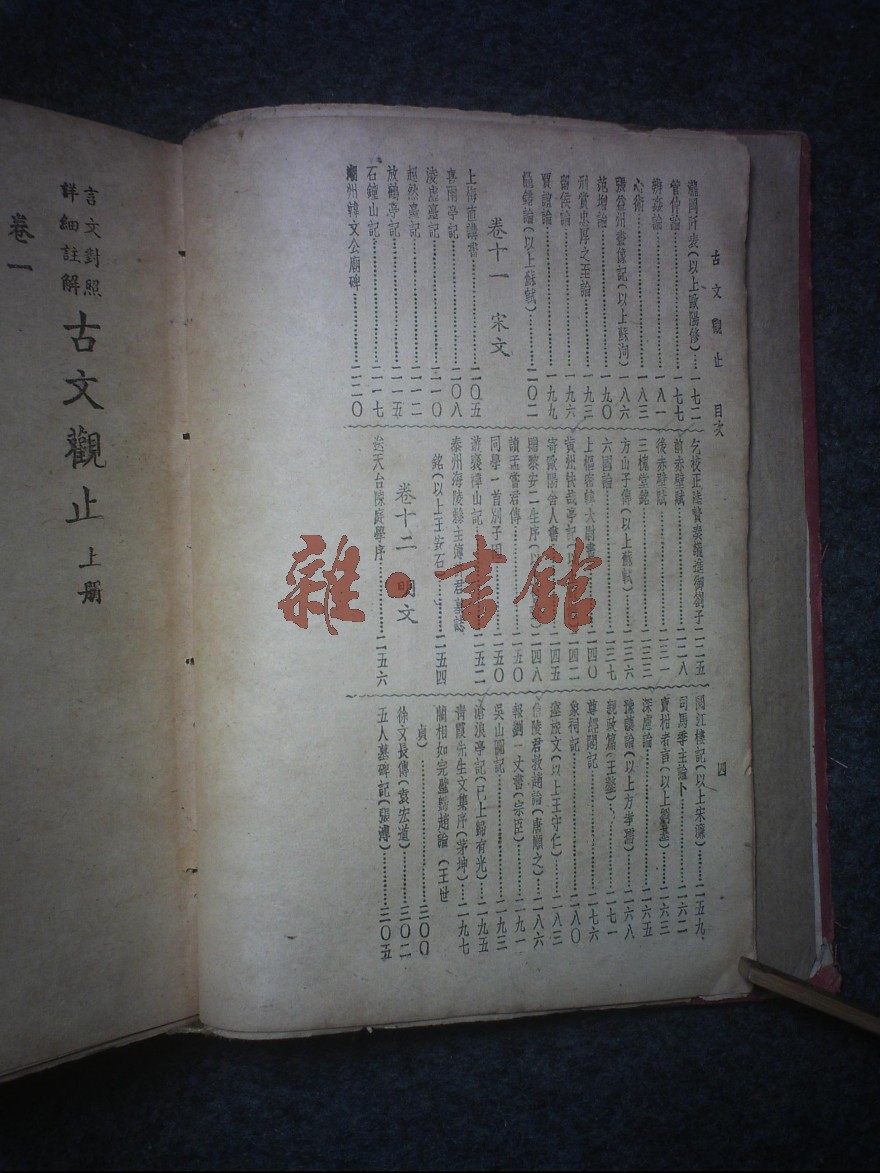 古文觀止 目次
四
瀧岡阡表(以上歐陽修)一七二
管仲論一七七
辨姦論一八一
心術一八三
張益州畫像記(以上蘇洵)一八六
范增論一九〇
刑賞忠厚之至論一九三
留侯論一九六
賈誼論一九九
鼂錯論(以上蘇軾)二〇二
卷十一 宋文
上梅直講書二〇五
喜雨亭記二〇八
凌虛臺記二一〇
超然臺記二一二
放鶴亭記二一五
石鐘山記二一七
潮州韓文公廟碑二二〇
乞校正陸贄奏議進御劄子二二五
前赤壁賦二二八
後赤壁賦二三一
三槐堂銘二三三
方山子傳(以上蘇軾)二三六
六國論二三七
上樞密韓太尉書二四〇
黃州快哉亭記二四二
寄歐陽舍人書二四五
贈黎安二生序二四八
讀孟嘗君傳二五〇
同學一首別子固二五〇
遊褒禪山記二五二
泰州海陵縣主簿許君墓誌
銘(以上王安石)二五四
卷十二 明文
送天台陳庭學序二五六
閱江樓記(以上宋濂)二五九
司馬季主論卜二六二
賣柑者言(以上劉基)二六三
深慮論二六五
豫讓論(以上方孝孺)二六八
親政篇(王鏊)二七一
尊經閣記二七六
象祠記二八〇
瘞旅文(以上王守仁)二八三
信陵君救趙論(唐順之)二八六
報劉一丈書(宗臣)二九一
吳山圖記二九三
滄浪亭記(已上歸有光)二九五
青霞先生文集序(茅坤)二九七
藺相如完璧歸趙論(王世
貞)三〇〇
徐文長傳(袁宏道)三〇二
五人墓碑記(張溥)三〇五
言文對照
詳細註解
古文觀止 上册
卷一
雜·書館